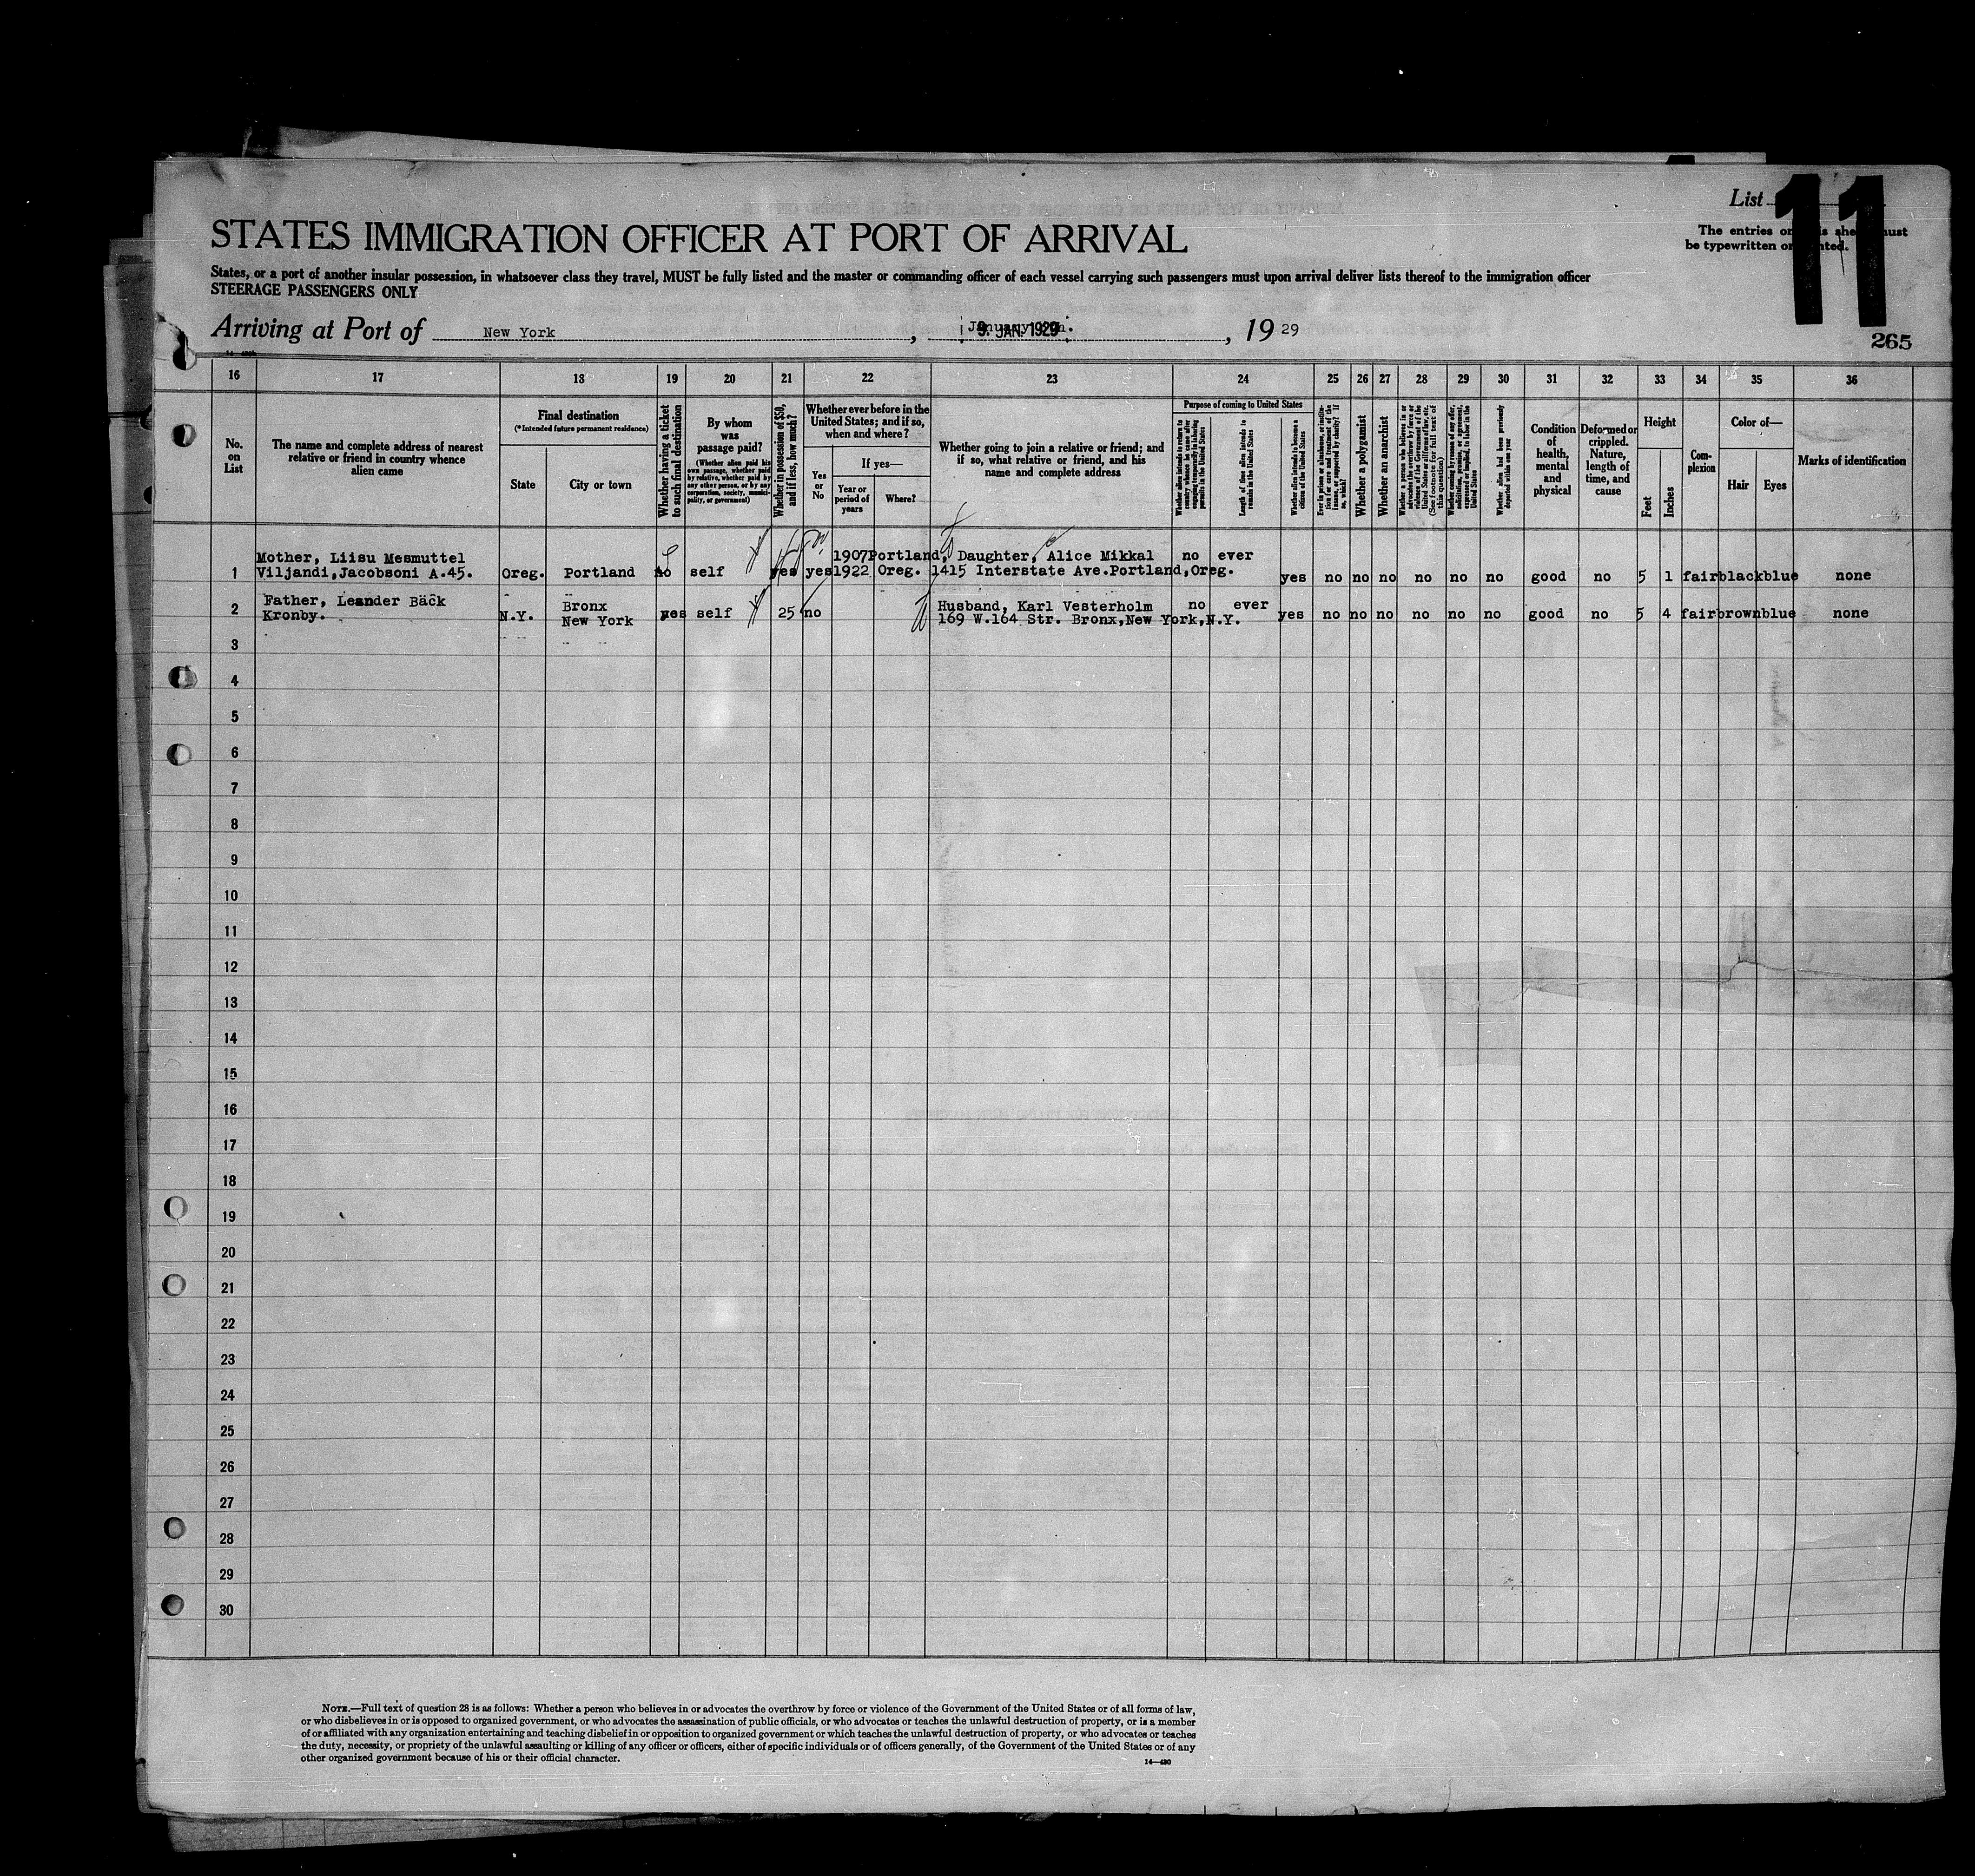 List 11
The entries on this sheet must
be typewritten or printed.
STATES IMMIGRATION OFFICER AT PORT OF ARRIVAL
States, or a port of another insular possession, in whatsoever class they travel, MUST be fully listed and the master or commanding officer of each vessel carrying such passengers must upon arrival deliver lists thereof to the immigration officer
STEERAGE PASSENGERS ONLY
Arriving at Port of New York, 9. JAN. 1929, 19 29
265
16 17 18 19 20 21 22 23 24 25 26 27 28 29 30 31 32 33 34 35 36
No.
on
List
The name and complete address of nearest
relative or friend in country whence
alien came
Final destination
(*Intended future permanent residence)
State
City or town
Whether having a ticket
to such final destination
By whom
was
passage paid?
(Whether alien paid his
own passage, whether paid
by relative, whether paid by
any other person, or by any
corporation, society, munici-
pality, or government)
Whether in possession of $50,
and if less, how much?
Whether ever before in the
United States; and if so,
when and where?
Yes
or
No
If yes—
Year or
period of
years
Where?
Whether going to join a relative or friend; and
if so, what relative or friend, and his
name and complete address
Purpose of coming to United States
Whether alien intends to return to
country whence he came after
engaging temporarily in laboring
pursuits in the United States
Length of time alien intends to
remain in the United States
Whether alien intends to become a
citizen of the United States
Ever in prison or almshouse, or institu-
tion for care and treatment of the
insane, or supported by charity? If
so, which?
Whether a polygamist
Whether an anarchist
Whether a person who believes in or
advocates the overthrow by force or
violence of the Government of the
United States or all forms of law, etc.
(See footnote for full text of
this question)
Whether coming by reason of any offer,
solicitation, promise, or agreement,
expressed or implied, to labor in the
United States
Whether alien had been previously
deported within one year
Condition
of
health,
mental
and
physical
Deformed or
crippled.
Nature,
length of
time, and
cause
Height
Feet
Inches
Com-
plexion
Color of—
Hair
Eyes
Marks of identification
Mother, Liisu Mesmuttel 1907 Portland, Daughter, Alice Mikkal no ever
1 Viljandi,Jacobsoni A.45. Oreg. Portland no self yes yes 1922 Oreg. 1415 Interstate Ave.Portland,Oreg. yes no no no no no no good no 5 1 fair black blue none
Father, Leander Bäck Bronx Husband, Karl Vesterholm no ever
2 Kronby. N.Y. New York yes self 25 no 169 W.164 Str. Bronx,New York,N.Y. yes no no no no no no good no 5 4 fair brown blue none
3
4
5
6
7
8
9
10
11
12
13
14
15
16
17
18
19
20
21
22
23
24
25
26
27
28
29
30
NOTE.—Full text of question 28 is as follows: Whether a person who believes in or advocates the overthrow by force or violence of the Government of the United States or of all forms of law,
or who disbelieves in or is opposed to organized government, or who advocates the assassination of public officials, or who advocates or teaches the unlawful destruction of property, or is a member
of or affiliated with any organization entertaining and teaching disbelief in or opposition to organized government or which teaches the unlawful destruction of property, or who advocates or teaches
the duty, necessity, or propriety of the unlawful assaulting or killing of any officer or officers, either of specific individuals or of officers generally, of the Government of the United States or of any
other organized government because of his or their official character.
14—430